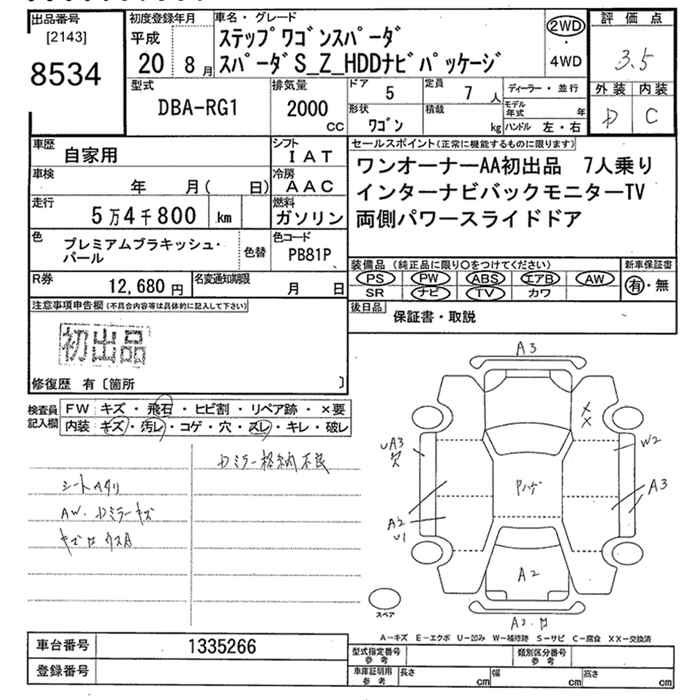 出品番号
[2143]
8534
初度登録年月
平成
20 8月
車名・グレード
ステップワゴンスパーダ
スパーダS_Z_HDDナビパッケージ
2WD
・
4WD
評価点
3.5
外装 内装
D C
型式
DBA-RG1
排気量
2000
cc
ドア
5
定員
7 人
形状
ワゴン
積載
kg
ディーラー・並行
モデル年式 年
ハンドル 左・右
車歴
自家用
シフト
IAT
車検
年 月( 日)
冷房
AAC
走行
5万4千800 km
燃料
ガソリン
色
プレミアムブラキッシュ・
パール
色替
色コード
PB81P
R券
12,680円
名変通知期限
月 日
セールスポイント(正常に機能するものに限ります)
ワンオーナーAA初出品 7人乗り
インターナビバックモニターTV
両側パワースライドドア
装備品 (純正品に限り〇をつけてください)
PS PW ABS エアB AW
SR ナビ TV カワ
新車保証書
有・無
後日品
保証書・取説
注意事項申告欄(不具合内容等は具体的に記入して下さい)
初出品
修復歴 有〔箇所 〕
検査員
記入欄
FW: キズ・飛石・ヒビ割・リペア跡・×要
内装: キズ・汚レ・コゲ・穴・スレ・キレ・破レ
シートヘタリ
AW.
キズ
A3
W2
A3
A2
U1
A2
スペア
A−キズ E−エクボ U−凹み W−補修跡 S−サビ C−腐食 XX−交換済
車台番号
1335266
登録番号
型式指定番号
参考
類別区分番号
参考
車庫証明用
参考
長さ cm
幅 cm
高さ cm